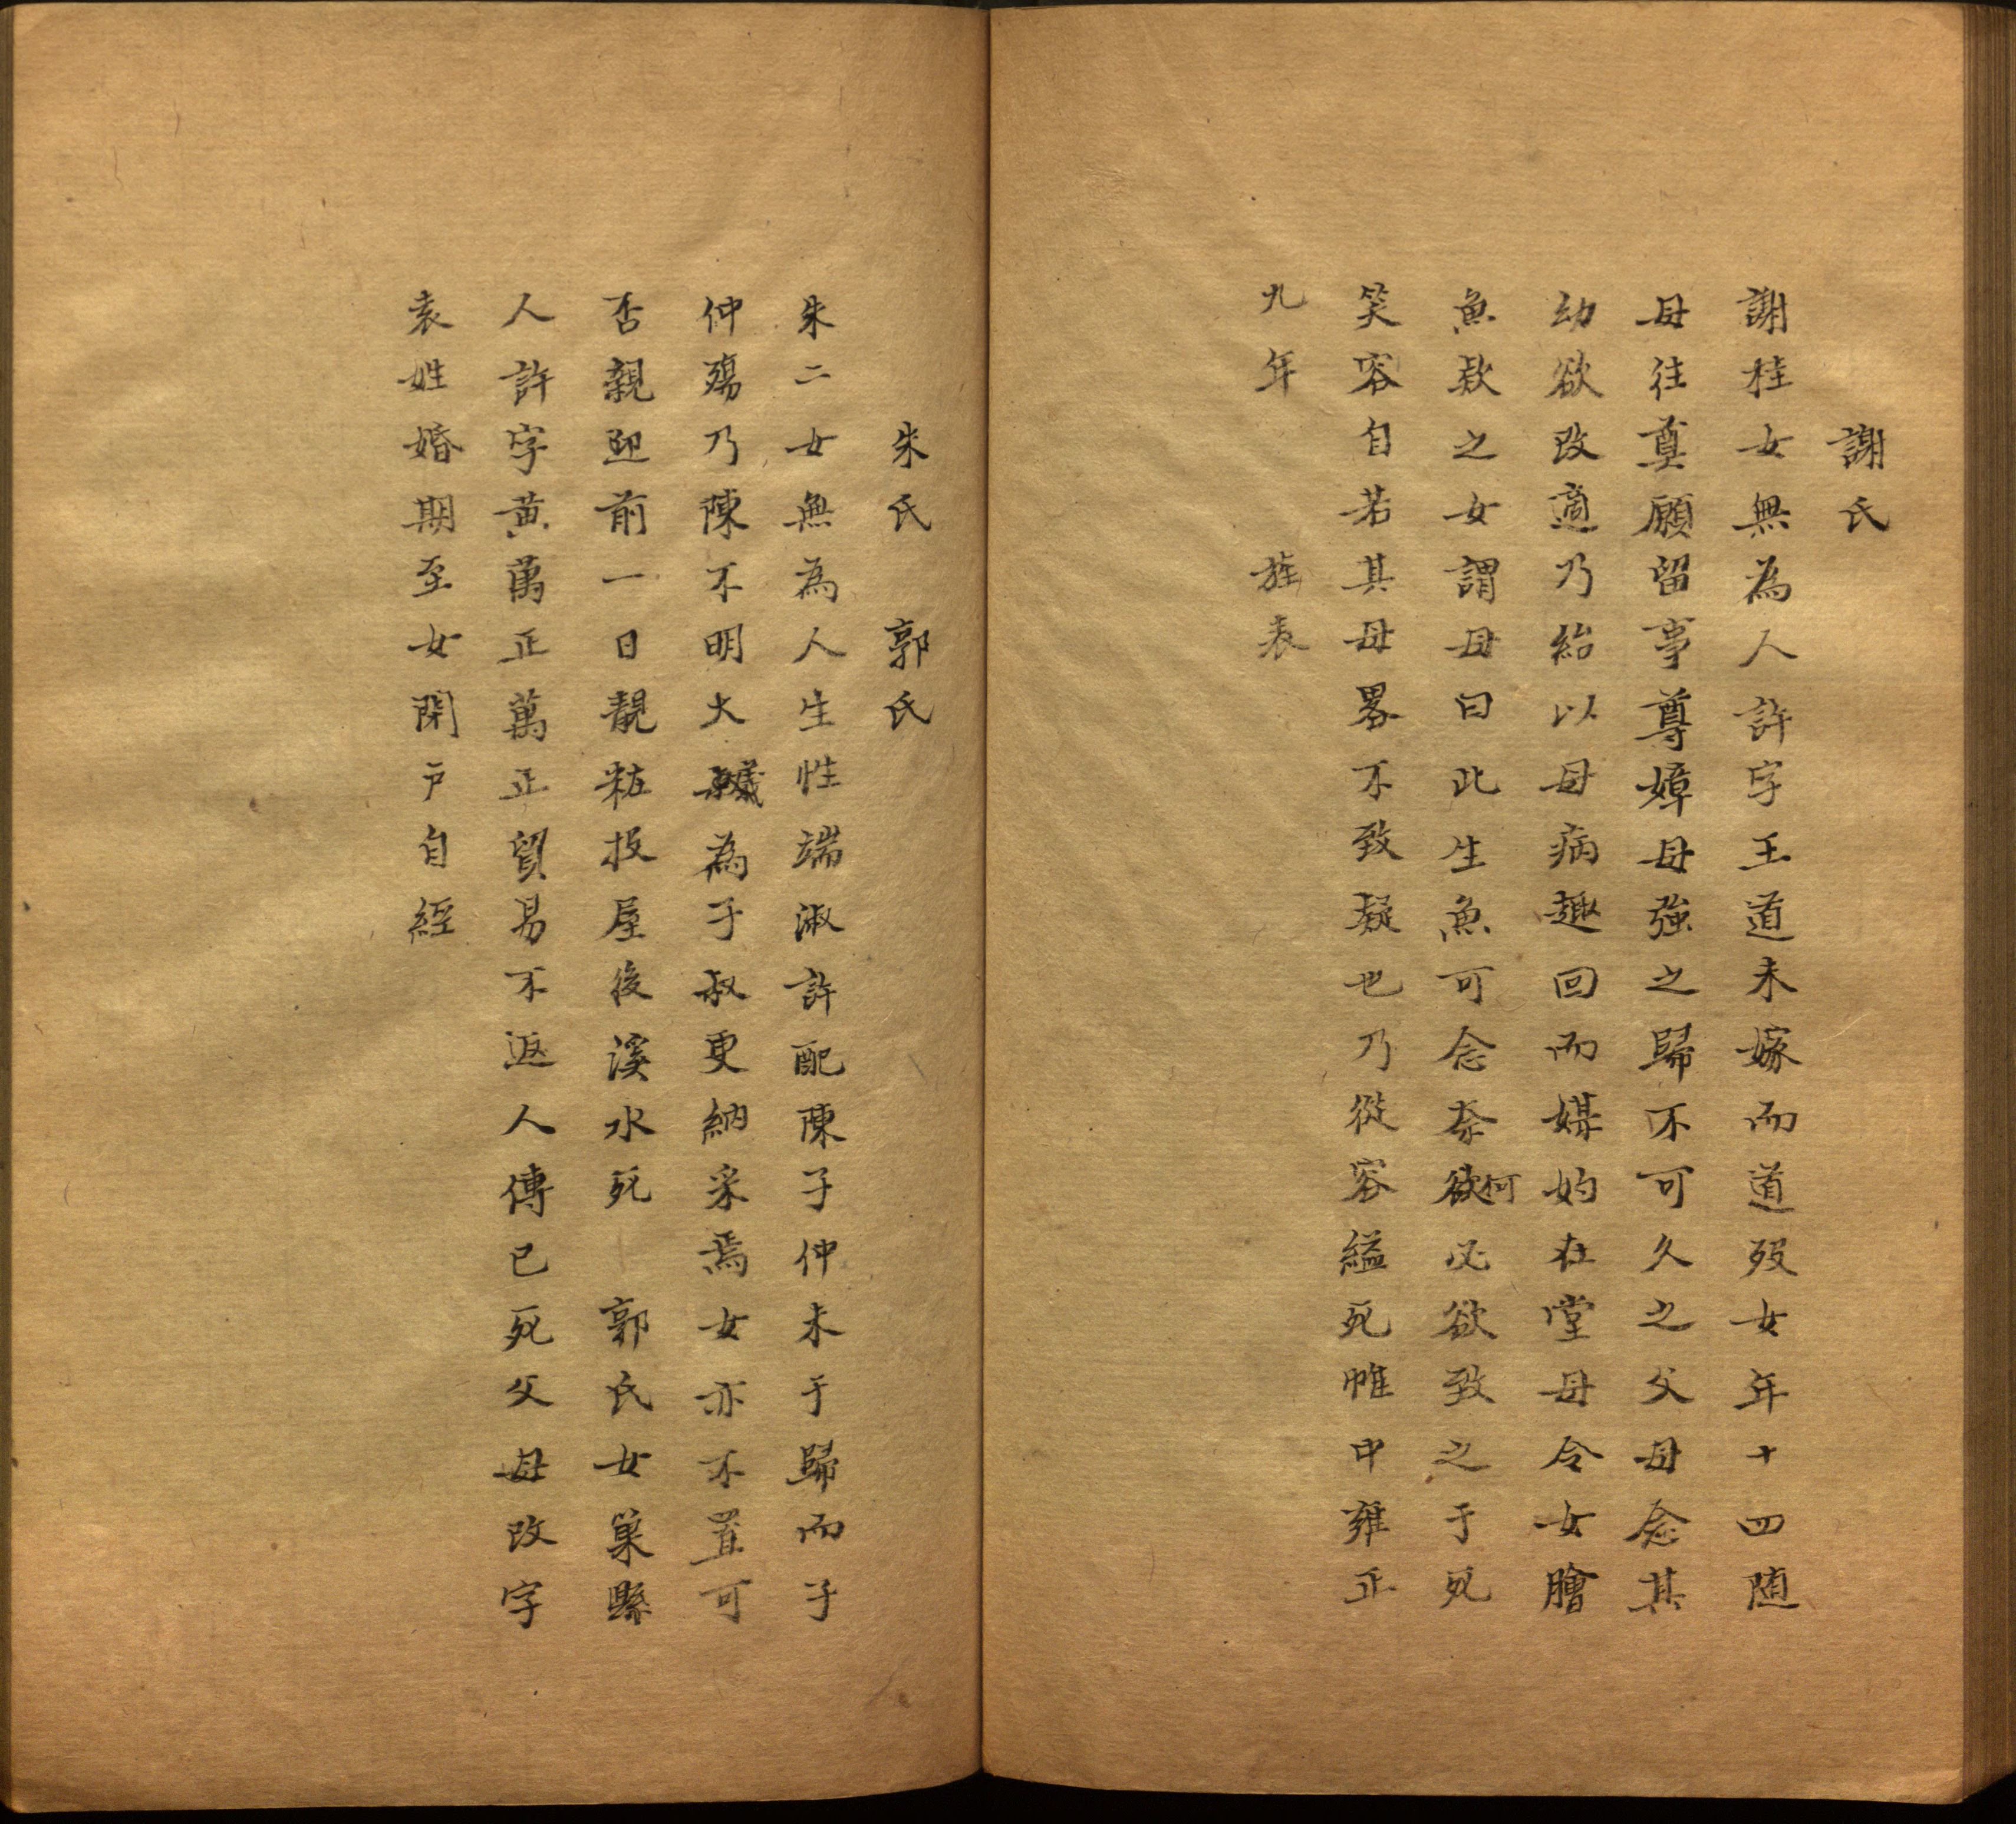 謝氏
謝桂女無為人許字王道未嫁而道歿女年十四随
母往奠願留事尊嫜母強之歸不可久之父母念其
幼欲改適乃紿以母病趣回而媒妁在堂母令女膾
魚欵之女謂母曰此生魚可念奈何必欲致之于死
笑容自若其母畧不致疑也乃從容縊死帷中雍正
九年　　旌表
朱氏　郭氏
朱二女無為人生性端淑許配陳子仲未于歸而子
仲殤乃陳不明大義為子叔更納采焉女亦不置可
否親迎前一日靚粧投屋後溪水死　郭氏女巢縣
人許字黃萬正萬正貿易不返人傳已死父母改字
袁姓婚期至女閉户自經